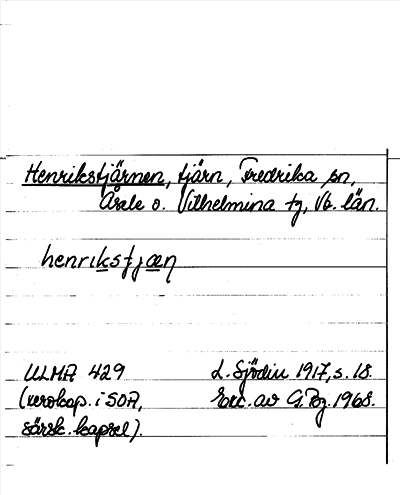 Henrikstjärnen, tjärn, Fredrika sn,
Åsele o. Vilhelmina tg, Vb. län.
henrikstjæn
ULMA 429 L. Sjödin 1917, s. 18.
(urokap. i SOA, Exc. av G. Bg. 1968.
särsk. kapsel).